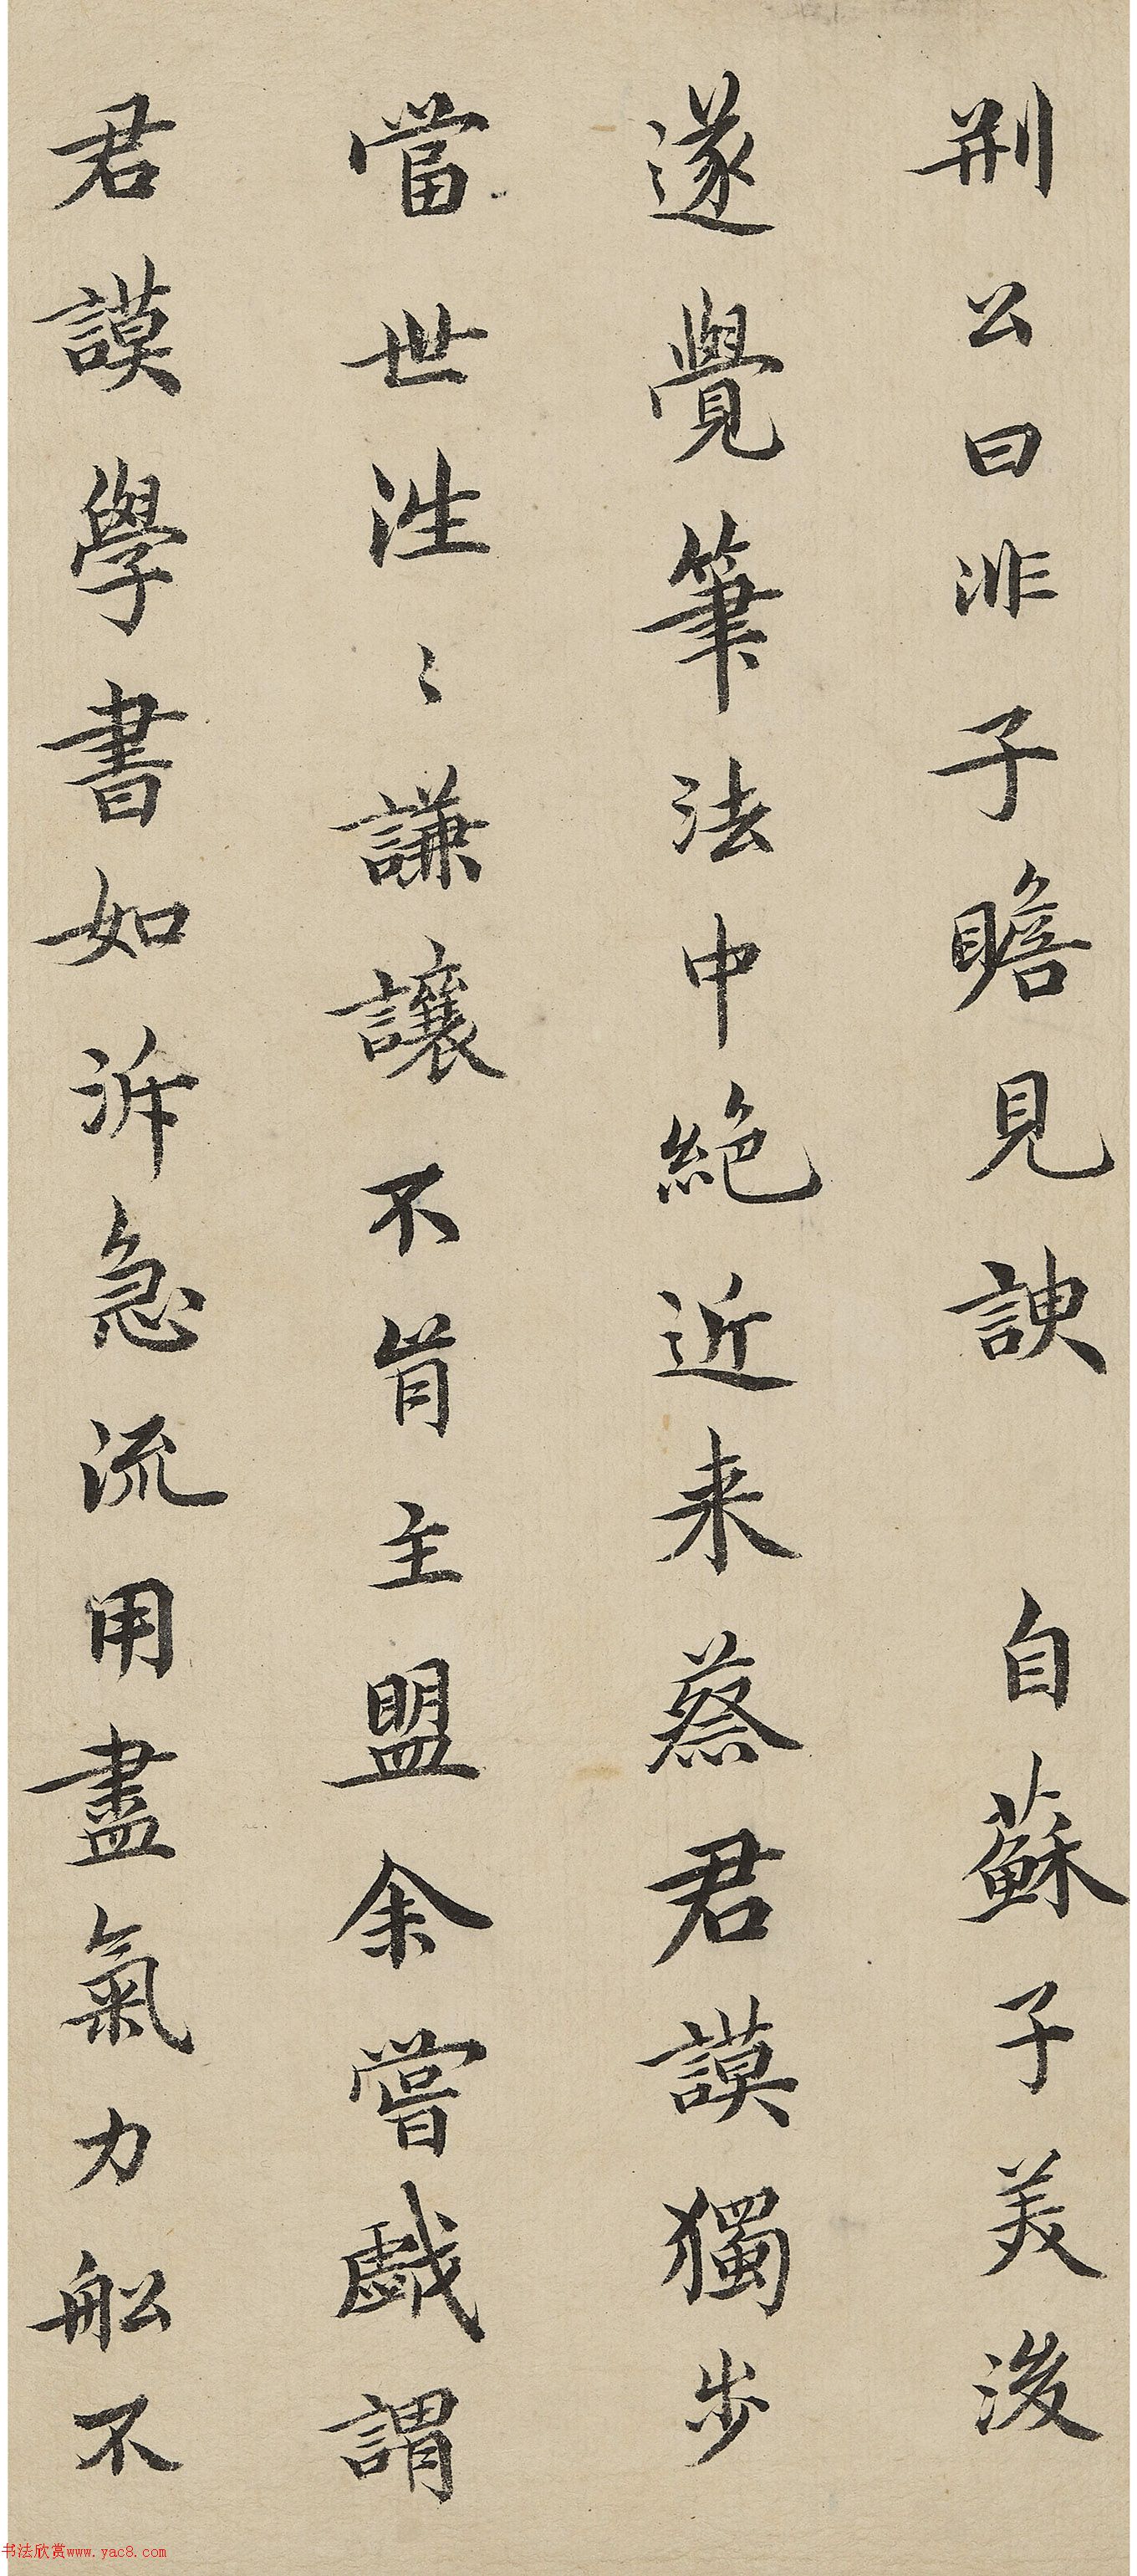 荆公曰非子瞻見諛 自蘇子美後
遂覺筆法中絶近来蔡君謨獨步
當世往〻謙讓不肯主盟余嘗戲謂
君謨學書如泝急流用盡氣力船不
书法欣赏www.yac8.com